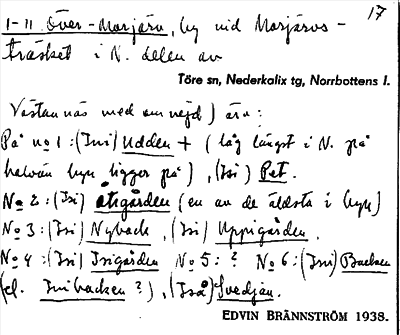 17
1-11 Över-Morjärv, by vid Morjärvs-
träsket i N. delen av
Töre sn, Nederkalix tg, Norrbottens l.
Västannäs med omnejd) äro:
På no 1: (Ini) Udden + (låg längst i N. på
halvön byn ligger på), (Isi) Pet.
No 2: (Isi) åtigården (en av de äldsta i byn)
No 3: (Isi) Nyback, (Isi) Uppigården.
No 4: (Isi) Isigården No 5: ? No 6: (Ini) Backen
(el. Inibacken?), (Iså) Svedjan.
EDVIN BRÄNNSTRÖM 1938.